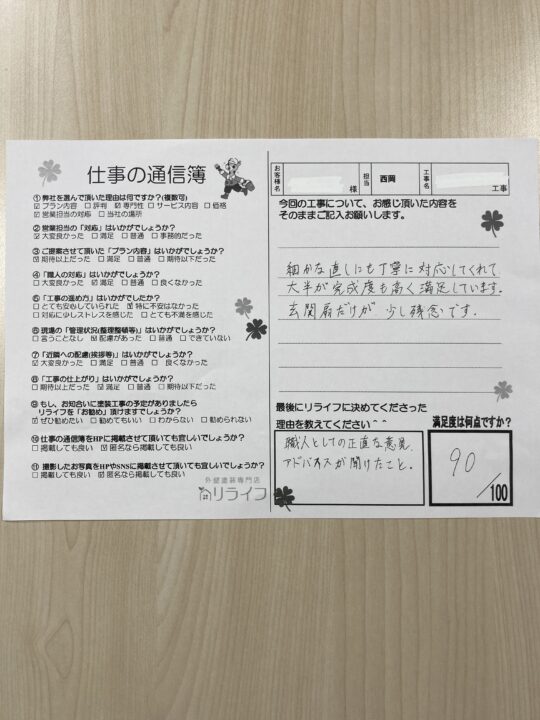 仕事の通信簿
①弊社を選んで頂いた理由は何ですか?(複数可)
☑プラン内容 □評判 ☑専門性 □サービス内容 □価格
☑営業担当の対応 □当社の場所
②営業担当の「対応」はいかがでしょうか?
☑大変良かった □満足 □普通 □事務的だった
③ご提案させて頂いた「プラン内容」はいかがでしょうか?
☑期待以上だった □満足 □普通 □期待以下だった
④「職人の対応」はいかがでしょうか?
□大変良かった ☑満足 □普通 □良くなかった
⑤「工事の進め方」はいかがでしたか?
□とても安心していられた ☑特に不安はなかった
□対応に少しストレスを感じた □とても不満を感じた
⑥現場の「管理状況(整理整頓等)」はいかがでしょうか?
□言うことなし ☑配慮があった □普通 □できていない
⑦「近隣への配慮(挨拶等)」はいかがでしょうか?
☑大変良かった □満足 □普通 □良くなかった
⑧「工事の仕上がり」はいかがでしょうか?
□期待以上だった ☑満足 □普通 □期待以下だった
⑨もし、お知合いに塗装工事の予定がありましたら
リライフを「お勧め」頂けますでしょうか?
☑ぜひ勧めたい □勧めてもいい □わからない □勧められない
⑩仕事の通信簿をHPに掲載させて頂いても宜しいでしょうか?
□掲載しても良い ☑匿名なら掲載しても良い
⑪撮影したお写真をHPやSNSに掲載させて頂いても宜しいでしょうか?
□掲載しても良い ☑匿名なら掲載しても良い
外壁塗装専門店
リライフ
お客様名 様 担当 西岡 工事名 工事
今回の工事について、お感じ頂いた内容を
そのままご記入お願いします。
細かな直しにも丁寧に対応してくれて
大半が完成度も高く満足しています。
玄関扉だけが少し残念です。
最後にリライフに決めてくださった
理由を教えてください^^
職人としての正直な意見、
アドバイスが聞けたこと。
満足度は何点ですか?
90
/100